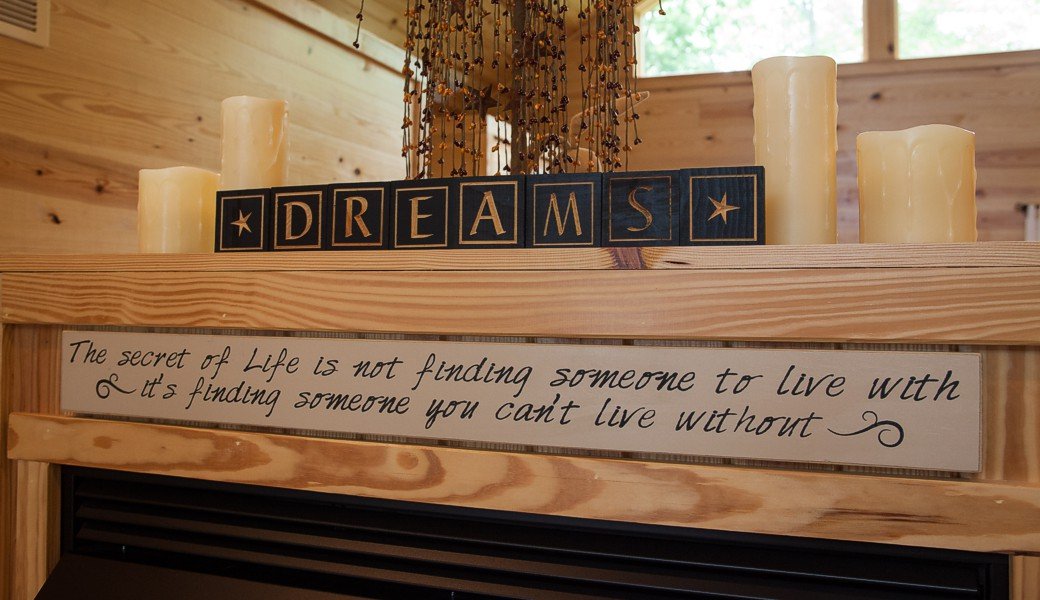 DREAMS
The secret of Life is not finding someone to live with
it's finding someone you can't live without